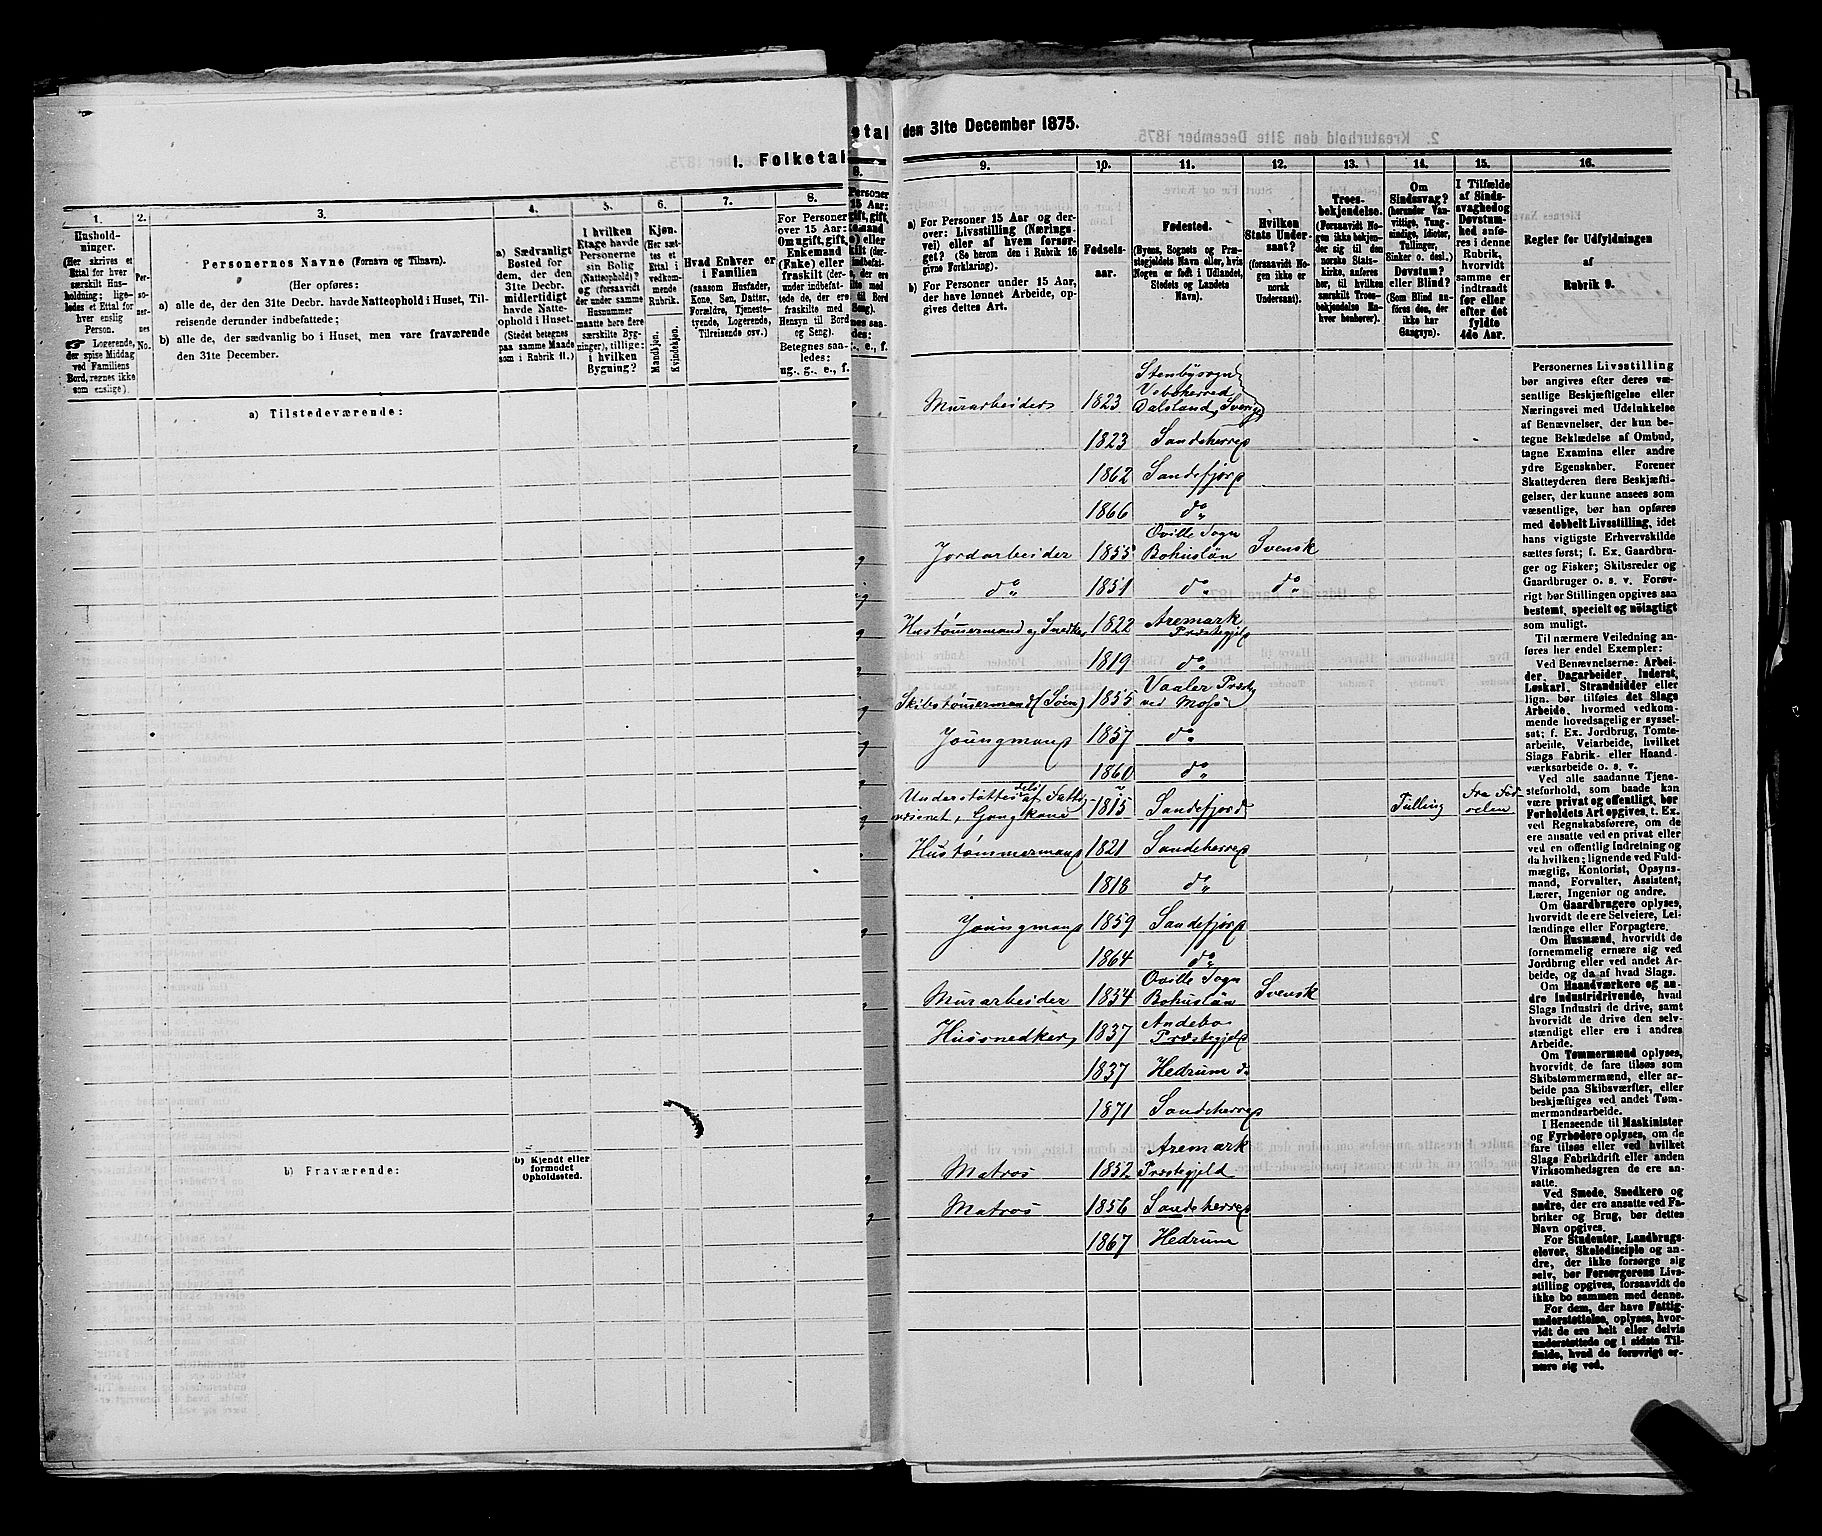 1. Folketal
1.
2.
3.
4.
5.
6.
7.
8.
Hushold-
ninger.
(Her skrives et
Ettal for hver
særskilt Hus-
holdning; lige-
ledes et Ettal for
hver enslig
Person.
Logerende,
der spise Middag
ved Familiens
Bord, regnes ikke
som enslige).
Per-
so-
ner-
nes
No.
Personernes Navne (Fornavn og Tilnavn).
(Her opføres:
a) alle de, der den 31te Decbr. havde Natteophold i Huset, Til-
reisende derunder indbefattede;
b) alle de, der sædvanlig bo i Huset, men vare fraværende
den 31te December.
a) Sædvanligt
Bosted for
dem, der den
31te Decbr.
midlertidigt
havde Natte-
ophold i Huset.
(Stedet betegnes
paa samme Maade
som i Rubrik 11.)
I hvilken
Etage havde
Personerne
sin Bolig
(Natteophold)?
og (forsaavidt
der under samme
Husnummer
maatte høre flere
særskilte Byg-
ninger), tillige:
i hvilken
Bygning?
Kjøn.
(Her sæt-
tes et
Ettal i
vedkom-
mende
Rubrik.
Mandkjøn.
Kvindekjøn.
Hvad Enhver er
i Familien
(saasom Husfader,
Kone, Søn, Datter,
Forældre, Tjeneste-
tyende, Logerende,
Tilreisende osv.)
For Personer
over 15 Aar:
Om ugift, gift,
Enkemand
(Enke) eller
fraskilt (der-
indbefat-
tede de, der ere
fraskilte med
Hensyn til Bord
og Seng).
Betegnes saa-
ledes:
ug., g., e., f.
a) Tilstedeværende:
b) Fraværende:
b) Kjendt eller
formodet
Opholdssted.
den 31te December 1875.
9.
10.
11.
12.
13.
14.
15.
16.
a) For Personer 15 Aar og der-
over: Livsstilling (Nærings-
vei) eller af hvem forsør-
get? (Se herom den i Rubrik 16
givne Forklaring).
b) For Personer under 15 Aar,
der have lønnet Arbeide, op-
gives dettes Art.
Fødsels-
aar.
Fødested.
(Byens, Sognets og Præ-
stegjeldets Navn eller, hvis
Nogen er født i Udlandet,
Stedets og Landets
Navn).
Hvilken
Stats Under-
saat?
(forsaavidt No-
gen ikke er
norsk
Undersaat).
Troes-
bekjendelse.
(Forsaavidt No-
gen ikke bekjen-
der sig til den
norske Stats-
kirke, anføres
her, til hvilken
særskilt Troes-
bekjendelse En-
hver henhører).
Om
Sindssvag?
(herunder Van-
vittige, Tung-
sindige, Idioter,
Tullinger,
Sinker o. desl.)
Døvstum?
eller Blind?
(Som Blind an-
føres den, der
ikke har
Gangsyn).
I Tilfælde
af Sinds-
svaghed og
Døvstum-
hed anfø-
res i denne
Rubrik,
hvorvidt
samme er
indtraadt
før eller
efter det
fyldte
4de Aar.
Regler for Udfyldningen
af
Rubrik 9.
Murarbeider 1823 Stenbysogn
Dalsland, Sverige
1823 Sandeherred
1862 Sandefjord
1866 do
Jordarbeider 1855 Qville Sogn
Bohuslän Svensk
do 1851 do do
Hustømermand og Snedker 1822 Aremark
Præstegjeld
1819 do
Skibstømermand (Søen) 1855 Vaaler Præstg
ved Moss
Joungmand 1857 do
1860 do
Understøttes delv af Fatti-
væsenet, Gangkone 1815 Sandefjord Tulling Fra Fød-
selen
Hustømmermand 1821 Sandeherred
1818 do
Joungmand 1859 Sandefjord
1864 do
Murarbeider 1854 Qville Sogn
Bohuslän Svensk
Hussnedker 1837 Andebo
Præstegjeld
1837 Hedrum do
1871 Sandeherred
Matros 1852 Aremark
Præstegjeld
Matros 1856 Sandeherred
1867 Hedrum
Personernes Livsstilling
bør angives efter deres væ-
sentlige Beskjæftigelse eller
Næringsvei med Udelukkelse
af Benævnelser, der kun be-
tegne Beklædelse af Ombud,
tagne Examina eller andre
ydre Egenskaber. Forener
Skatteyderen flere Beskjæfti-
gelser, der kunne ansees som
væsentlige, bør han opføres
med dobbelt Livsstilling, idet
hans vigtigste Erhvervskilde
sættes først; f. Ex. Gaardbru-
ger og Fisker; Skibsreder og
Gaardbruger o. s. v. Forøv-
rigt bør Stillingen opgives saa
bestemt, specielt og nøiagtigt
som muligt.
Til nærmere Veiledning an-
føres her endel Exempler:
Ved Benævnelserne: Arbei-
der, Dagarbeider, Inderst,
Løskarl, Strandsidder eller
lign. bør tilføies det Slags
Arbeide, hvormed vedkom-
mende hovedsagelig er syssel-
sat; f. Ex. Jordbrug, Tomte-
arbeide, Veiarbeide, hvilket
Slags Fabrik- eller Haand-
værksarbeide o. s. v.
Ved alle saadanne Tjene-
steforhold, som baade kan
være privat og offentligt, bør
Forholdets Art opgives, t. Ex.
ved Regnskabsførere, om de
ere ansatte ved en privat eller
ved en offentlig Indretning og
da hvilken; lignende ved Fuld-
mægtig, Kontorist, Opsyns-
mand, Forvalter, Assistent,
Lærer, Ingeniør og andre.
Om Gaardbrugere oplyses,
hvorvidt de ere Selveiere, Lei-
lændinge eller Forpagtere.
Om Husmænd, hvorvidt de
fornemmelig ernære sig ved
Jordbrug eller ved andet Ar-
beide, og da af hvad Slags.
Om Haandværkere og an-
dre Industridrivende, hvad
Slags Industri de drive, samt
hvorvidt de drive den selv-
stændigt eller ere i andres
Arbeide.
Om Tømmermænd oplyses,
hvorvidt de fare tilsøs som
Skibstømmermænd, eller ar-
beide paa Skibsværfter, eller
beskjæftiges ved andet Tøm-
mermandsarbeide.
I Henseende til Maskinister
og Fyrbødere oplyses, om de
fare tilsøs eller ved hvilket
Slags Fabrikdrift eller anden
Virksomhedsgren de ere an-
satte.
Ved Smede, Snedkere og
andre, der ere ansatte ved Fa-
briker og Brug, bør dettes
Navn opgives.
For Studenter, Landbrugs-
elever, Skoledisciple og an-
dre, der ikke forsørge sig
selv, bør Forsørgerens Livs-
stilling opgives, forsaavidt de
ikke bo sammen med denne.
For dem, der have Fattig-
understøttelse, oplyses, hvor-
vidt de ere helt eller delvis
understøttede og i sidste Til-
fælde, hvad de forøvrigt er-
nære sig ved.